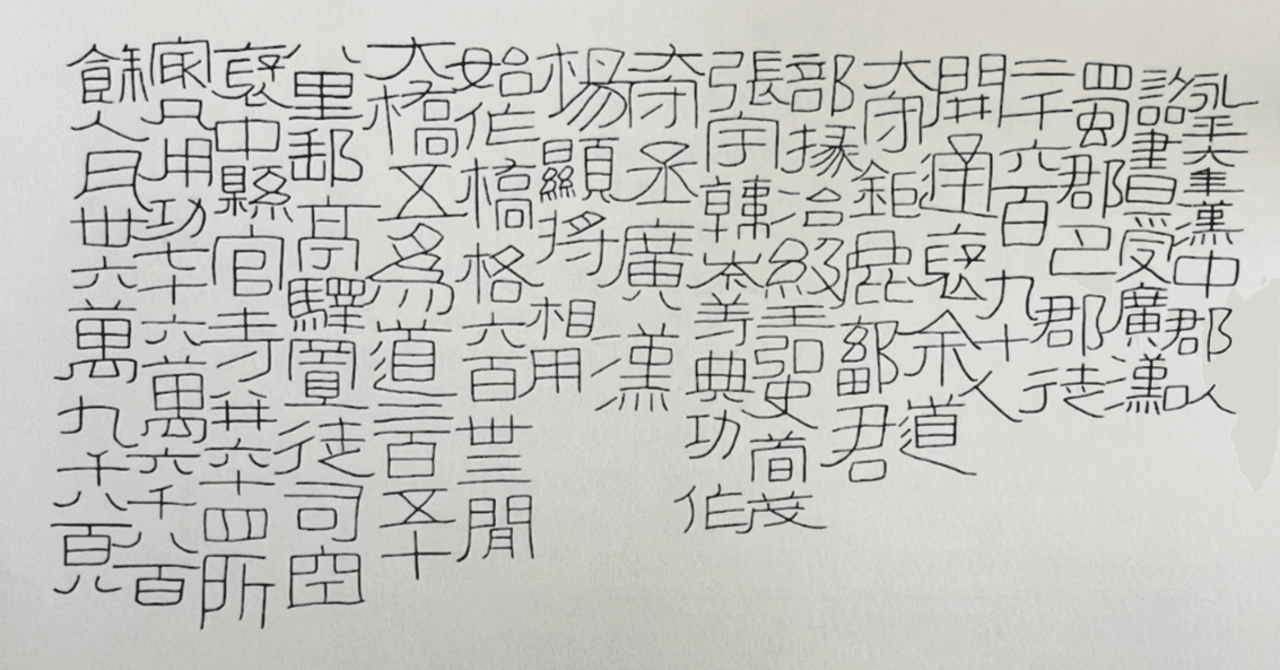 永平六年漢中郡以
詔書受廣漢
蜀郡巴郡徒
二千六百九十人
開通褒余道
太守鉅鹿鄐君
部掾治級王弘史荀茂
張宇韓岑等典功作
太守丞廣漢
楊顯將相用
始作橋格六百卅三閒
大橋五為道二百五十
八里郵亭驛置徒司空
褒中縣官寺并六十四所
最凡用功七十六萬六千八百
餘人瓦卅六萬九千八百四